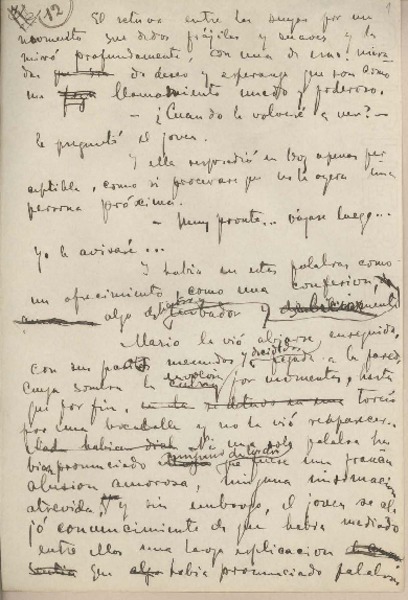 12
1
El retuvo entre las suyas por un
momento sus dedos frágiles y suaves y la
miró profundamente, con una de esas mira-
das de deseo y esperanza que son como
un llamamiento mudo y poderoso.
— ¿Cuando la volveré a ver? —
le preguntó el joven.
Y ella respondió en voz apenas per
ceptible, como si procurase que no la oyera una
persona próxima.
— Muy pronto... váyase luego...
Yo le avisaré...
Y había en estas palabras como
un ofrecimiento, como una confesion,
algo turbador y
Mario la vió alejarse enseguida,
con sus pasos menudos y pegada a la pared
cuya sombra la por momentos, hasta
que por fin, torció
por una bocacalle y no la vió reaparecer.
Ni una sola palabra ha
bían pronunciado que fuese una
alusion amorosa, ninguna insinuacion
atrevida, y sin embargo, el joven se ale
jó convencimiento de que había mediado
entre ellos una larga explicacion
que había pronunciado palabras